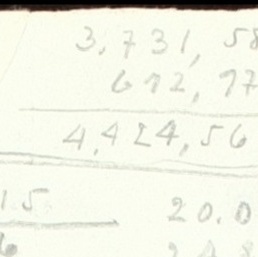 3,731,58
692,97
4,424,56
15 20.0